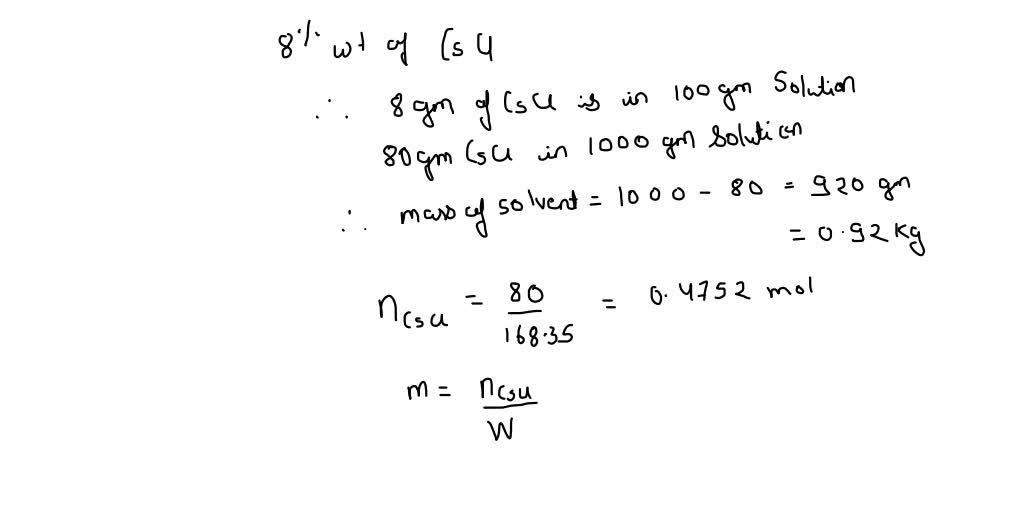 8% wt of CsCl
∴ 8 gm of CsCl is in 100 gm Solution
80 gm CsCl in 1000 gm Solution
∴ mass of solvent = 1000 - 80 = 920 gm
= 0.92 Kg
nCsCl = 80/168.35 = 0.4752 mol
m = nCsCl/W